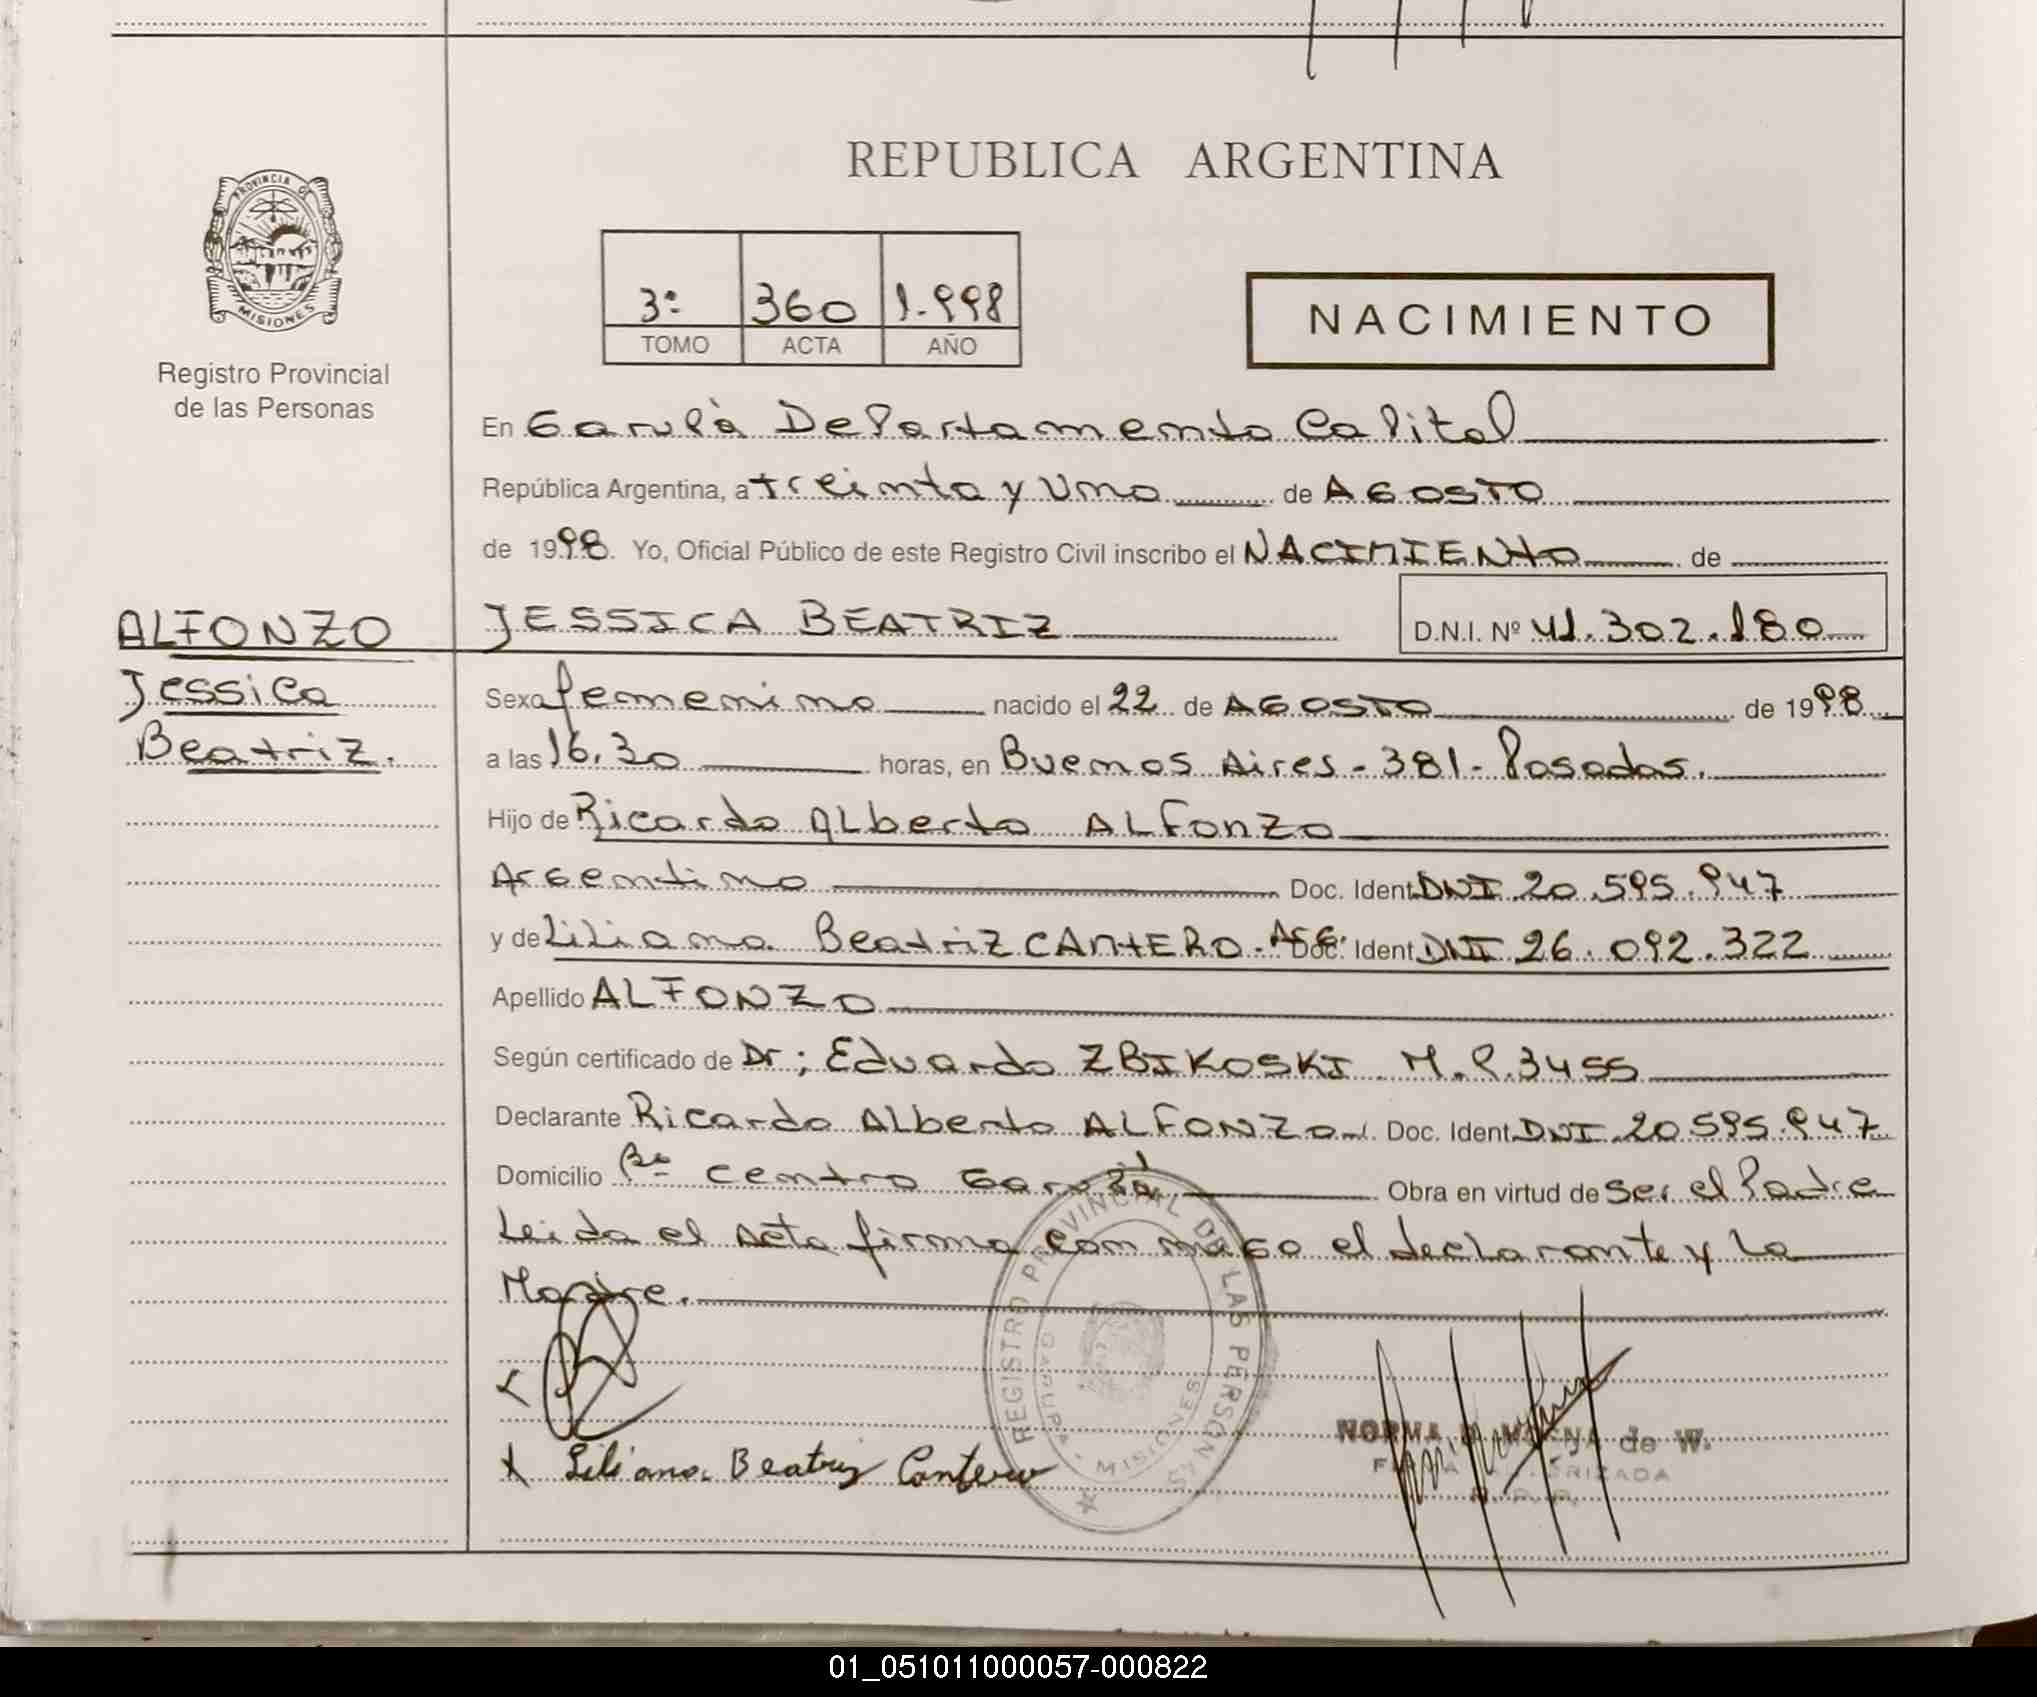 PROVINCIA DE
MISIONES
Registro Provincial
de las Personas
REPUBLICA ARGENTINA
3º 360 1.998
TOMO ACTA AÑO
NACIMIENTO
En Garupà Departamento Capital
República Argentina, a treinta y Uno de AGOSTO
de 1998. Yo, Oficial Público de este Registro Civil inscribo el NACIMIENTO de
ALFONZO JESSICA BEATRIZ D.N.I. Nº 41.302.180
Jessica
Beatriz.
Sexo femenino nacido el 22 de AGOSTO de 1998
a las 16.30 horas, en Buenos Aires - 381 - Posadas.
Hijo de Ricardo Alberto ALFonzo
Argentino Doc. Ident. DNI 20.595.947
y de Liliana Beatriz CANTERO - Arg. Doc. Ident. DNI 26.092.322
Apellido ALFONZO
Según certificado de Dr; Eduardo ZBIKOSKI M.P. 3455
Declarante Ricardo Alberto ALFONZO Doc. Ident. DNI 20.595.947
Domicilio Bº Centro Garupá Obra en virtud de Ser el Padre
Leida el Acta firma conmigo el declarante y La
Madre.
REGISTRO PROVINCIAL DE LAS PERSONAS
GARUPA - MISIONES
Liliana Beatriz Cantero
NORMA de W.
FIRMA AUTORIZADA
01_051011000057-000822